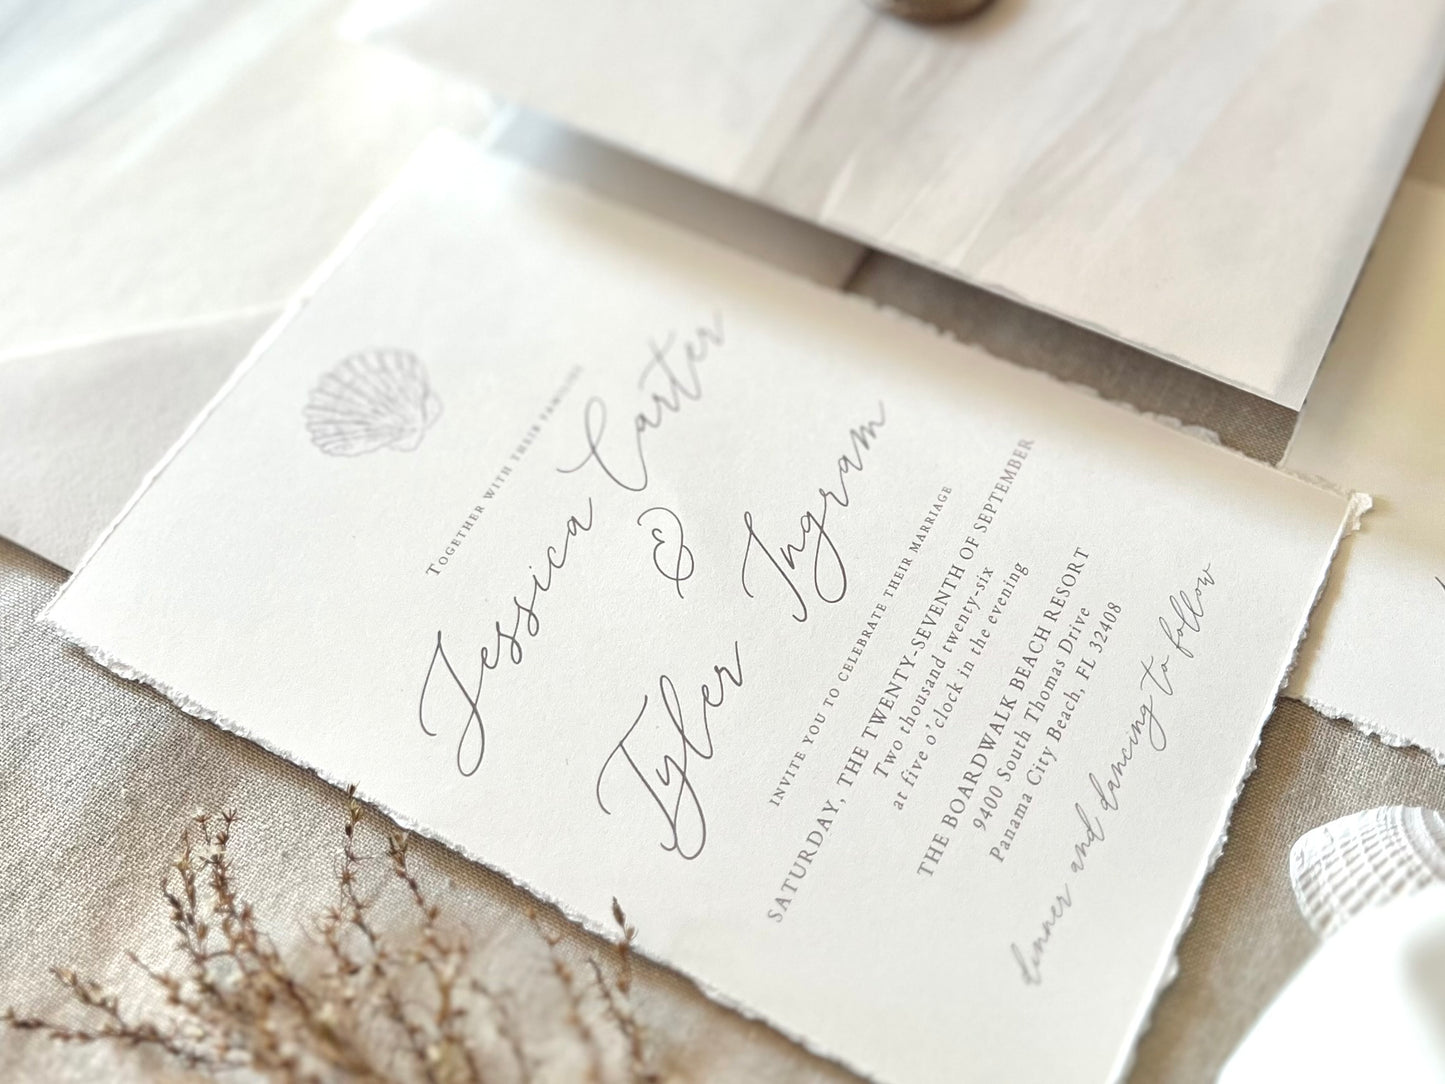 TOGETHER WITH THEIR FAMILIES
Jessica Carter
&
Tyler Ingram
INVITE YOU TO CELEBRATE THEIR MARRIAGE
SATURDAY, THE TWENTY-SEVENTH OF SEPTEMBER
Two thousand twenty-six
at five o'clock in the evening
THE BOARDWALK BEACH RESORT
9400 South Thomas Drive
Panama City Beach, FL 32408
dinner and dancing to follow